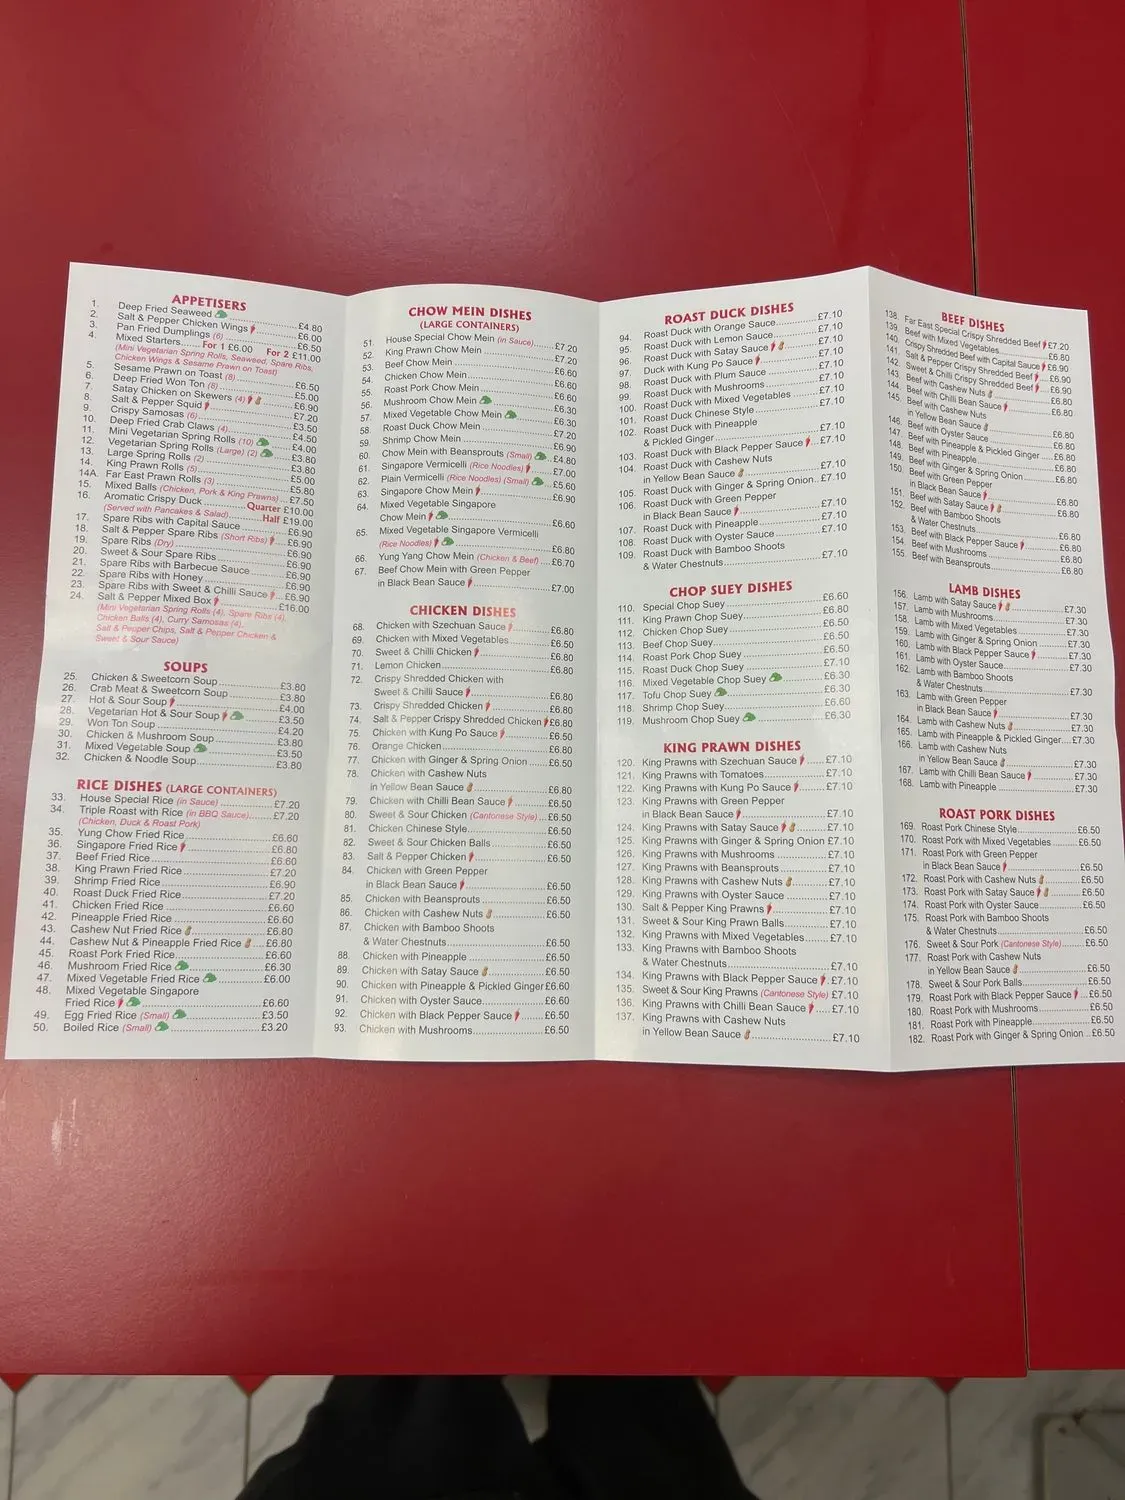 APPETISERS
1. Deep Fried Seaweed £4.80
2. Salt & Pepper Chicken Wings £6.00
3. Pan Fried Dumplings (6) £6.50
4. Mixed Starters For 1 £6.00 For 2 £11.00
(Mini Vegetarian Spring Rolls, Seaweed, Spare Ribs,
Chicken Wings & Sesame Prawn on Toast)
5. Sesame Prawn on Toast (8) £6.50
6. Deep Fried Won Ton (8) £5.00
7. Satay Chicken on Skewers (4) £6.90
8. Salt & Pepper Squid £7.20
9. Crispy Samosas (6) £3.50
10. Deep Fried Crab Claws (4) £4.50
11. Mini Vegetarian Spring Rolls (10) £4.00
12. Vegetarian Spring Rolls (Large) (2) £3.80
13. Large Spring Rolls (2) £3.80
14. King Prawn Rolls (5) £5.00
14A. Far East Prawn Rolls (3) £5.80
15. Mixed Balls (Chicken, Pork & King Prawns) £7.50
16. Aromatic Crispy Duck Quarter £10.00
(Served with Pancakes & Salad) Half £19.00
17. Spare Ribs with Capital Sauce £6.90
18. Salt & Pepper Spare Ribs (Short Ribs) £6.90
19. Spare Ribs (Dry) £6.90
20. Sweet & Sour Spare Ribs £6.90
21. Spare Ribs with Barbecue Sauce £6.90
22. Spare Ribs with Honey £6.90
23. Spare Ribs with Sweet & Chilli Sauce £6.90
24. Salt & Pepper Mixed Box £16.00
(Mini Vegetarian Spring Rolls (4), Spare Ribs (4),
Chicken Balls (4), Curry Samosas (4),
Salt & Pepper Chips, Salt & Pepper Chicken &
Sweet & Sour Sauce)
SOUPS
25. Chicken & Sweetcorn Soup £3.80
26. Crab Meat & Sweetcorn Soup £3.80
27. Hot & Sour Soup £4.00
28. Vegetarian Hot & Sour Soup £3.50
29. Won Ton Soup £4.20
30. Chicken & Mushroom Soup £3.80
31. Mixed Vegetable Soup £3.50
32. Chicken & Noodle Soup £3.80
RICE DISHES (LARGE CONTAINERS)
33. House Special Rice (in Sauce) £7.20
34. Triple Roast with Rice (in BBQ Sauce) £7.20
(Chicken, Duck & Roast Pork)
35. Yung Chow Fried Rice £6.60
36. Singapore Fried Rice £6.80
37. Beef Fried Rice £6.60
38. King Prawn Fried Rice £7.20
39. Shrimp Fried Rice £6.90
40. Roast Duck Fried Rice £7.20
41. Chicken Fried Rice £6.60
42. Pineapple Fried Rice £6.60
43. Cashew Nut Fried Rice £6.80
44. Cashew Nut & Pineapple Fried Rice £6.80
45. Roast Pork Fried Rice £6.60
46. Mushroom Fried Rice £6.30
47. Mixed Vegetable Fried Rice £6.00
48. Mixed Vegetable Singapore
Fried Rice £6.60
49. Egg Fried Rice (Small) £3.50
50. Boiled Rice (Small) £3.20
CHOW MEIN DISHES
(LARGE CONTAINERS)
51. House Special Chow Mein (in Sauce) £7.20
52. King Prawn Chow Mein £7.20
53. Beef Chow Mein £6.60
54. Chicken Chow Mein £6.60
55. Roast Pork Chow Mein £6.60
56. Mushroom Chow Mein £6.30
57. Mixed Vegetable Chow Mein £6.30
58. Roast Duck Chow Mein £7.20
59. Shrimp Chow Mein £6.90
60. Chow Mein with Beansprouts (Small) £4.80
61. Singapore Vermicelli (Rice Noodles) £7.00
62. Plain Vermicelli (Rice Noodles) (Small) £5.60
63. Singapore Chow Mein £6.90
64. Mixed Vegetable Singapore
Chow Mein £6.60
65. Mixed Vegetable Singapore Vermicelli
(Rice Noodles) £6.80
66. Yung Yang Chow Mein (Chicken & Beef) £6.70
67. Beef Chow Mein with Green Pepper
in Black Bean Sauce £7.00
CHICKEN DISHES
68. Chicken with Szechuan Sauce £6.80
69. Chicken with Mixed Vegetables £6.50
70. Sweet & Chilli Chicken £6.80
71. Lemon Chicken £6.80
72. Crispy Shredded Chicken with
Sweet & Chilli Sauce £6.80
73. Crispy Shredded Chicken £6.80
74. Salt & Pepper Crispy Shredded Chicken £6.80
75. Chicken with Kung Po Sauce £6.50
76. Orange Chicken £6.80
77. Chicken with Ginger & Spring Onion £6.50
78. Chicken with Cashew Nuts
in Yellow Bean Sauce £6.80
79. Chicken with Chilli Bean Sauce £6.50
80. Sweet & Sour Chicken (Cantonese Style) £6.50
81. Chicken Chinese Style £6.50
82. Sweet & Sour Chicken Balls £6.50
83. Salt & Pepper Chicken £6.50
84. Chicken with Green Pepper
in Black Bean Sauce £6.50
85. Chicken with Beansprouts £6.50
86. Chicken with Cashew Nuts £6.50
87. Chicken with Bamboo Shoots
& Water Chestnuts £6.50
88. Chicken with Pineapple £6.50
89. Chicken with Satay Sauce £6.50
90. Chicken with Pineapple & Pickled Ginger £6.60
91. Chicken with Oyster Sauce £6.60
92. Chicken with Black Pepper Sauce £6.50
93. Chicken with Mushrooms £6.50
ROAST DUCK DISHES
94. Roast Duck with Orange Sauce £7.10
95. Roast Duck with Lemon Sauce £7.10
96. Roast Duck with Satay Sauce £7.10
97. Duck with Kung Po Sauce £7.10
98. Roast Duck with Plum Sauce £7.10
99. Roast Duck with Mushrooms £7.10
100. Roast Duck with Mixed Vegetables £7.10
101. Roast Duck Chinese Style £7.10
102. Roast Duck with Pineapple
& Pickled Ginger £7.10
103. Roast Duck with Black Pepper Sauce £7.10
104. Roast Duck with Cashew Nuts
in Yellow Bean Sauce £7.10
105. Roast Duck with Ginger & Spring Onion £7.10
106. Roast Duck with Green Pepper
in Black Bean Sauce £7.10
107. Roast Duck with Pineapple £7.10
108. Roast Duck with Oyster Sauce £7.10
109. Roast Duck with Bamboo Shoots
& Water Chestnuts £7.10
CHOP SUEY DISHES
110. Special Chop Suey £6.60
111. King Prawn Chop Suey £6.80
112. Chicken Chop Suey £6.50
113. Beef Chop Suey £6.50
114. Roast Pork Chop Suey £6.50
115. Roast Duck Chop Suey £7.10
116. Mixed Vegetable Chop Suey £6.30
117. Tofu Chop Suey £6.30
118. Shrimp Chop Suey £6.60
119. Mushroom Chop Suey £6.30
KING PRAWN DISHES
120. King Prawns with Szechuan Sauce £7.10
121. King Prawns with Tomatoes £7.10
122. King Prawns with Kung Po Sauce £7.10
123. King Prawns with Green Pepper
in Black Bean Sauce £7.10
124. King Prawns with Satay Sauce £7.10
125. King Prawns with Ginger & Spring Onion £7.10
126. King Prawns with Mushrooms £7.10
127. King Prawns with Beansprouts £7.10
128. King Prawns with Cashew Nuts £7.10
129. King Prawns with Oyster Sauce £7.10
130. Salt & Pepper King Prawns £7.10
131. Sweet & Sour King Prawn Balls £7.10
132. King Prawns with Mixed Vegetables £7.10
133. King Prawns with Bamboo Shoots
& Water Chestnuts £7.10
134. King Prawns with Black Pepper Sauce £7.10
135. Sweet & Sour King Prawns (Cantonese Style) £7.10
136. King Prawns with Chilli Bean Sauce £7.10
137. King Prawns with Cashew Nuts
in Yellow Bean Sauce £7.10
BEEF DISHES
138. Far East Special Crispy Shredded Beef £7.20
139. Beef with Mixed Vegetables £6.80
140. Crispy Shredded Beef with Capital Sauce £6.90
141. Salt & Pepper Crispy Shredded Beef £6.90
142. Sweet & Chilli Crispy Shredded Beef £6.90
143. Beef with Cashew Nuts £6.80
144. Beef with Chilli Bean Sauce £6.80
145. Beef with Cashew Nuts
in Yellow Bean Sauce £6.80
146. Beef with Oyster Sauce £6.80
147. Beef with Pineapple & Pickled Ginger £6.80
148. Beef with Pineapple £6.80
149. Beef with Ginger & Spring Onion £6.80
150. Beef with Green Pepper
in Black Bean Sauce £6.80
151. Beef with Satay Sauce £6.80
152. Beef with Bamboo Shoots
& Water Chestnuts £6.80
153. Beef with Black Pepper Sauce £6.80
154. Beef with Mushrooms £6.80
155. Beef with Beansprouts £6.80
LAMB DISHES
156. Lamb with Satay Sauce £7.30
157. Lamb with Mushrooms £7.30
158. Lamb with Mixed Vegetables £7.30
159. Lamb with Ginger & Spring Onion £7.30
160. Lamb with Black Pepper Sauce £7.30
161. Lamb with Oyster Sauce £7.30
162. Lamb with Bamboo Shoots
& Water Chestnuts £7.30
163. Lamb with Green Pepper
in Black Bean Sauce £7.30
164. Lamb with Cashew Nuts £7.30
165. Lamb with Pineapple & Pickled Ginger £7.30
166. Lamb with Cashew Nuts
in Yellow Bean Sauce £7.30
167. Lamb with Chilli Bean Sauce £7.30
168. Lamb with Pineapple £7.30
ROAST PORK DISHES
169. Roast Pork Chinese Style £6.50
170. Roast Pork with Mixed Vegetables £6.50
171. Roast Pork with Green Pepper
in Black Bean Sauce £6.50
172. Roast Pork with Cashew Nuts £6.50
173. Roast Pork with Satay Sauce £6.50
174. Roast Pork with Oyster Sauce £6.50
175. Roast Pork with Bamboo Shoots
& Water Chestnuts £6.50
176. Sweet & Sour Pork (Cantonese Style) £6.50
177. Roast Pork with Cashew Nuts
in Yellow Bean Sauce £6.50
178. Sweet & Sour Pork Balls £6.50
179. Roast Pork with Black Pepper Sauce £6.50
180. Roast Pork with Mushrooms £6.50
181. Roast Pork with Pineapple £6.50
182. Roast Pork with Ginger & Spring Onion £6.50